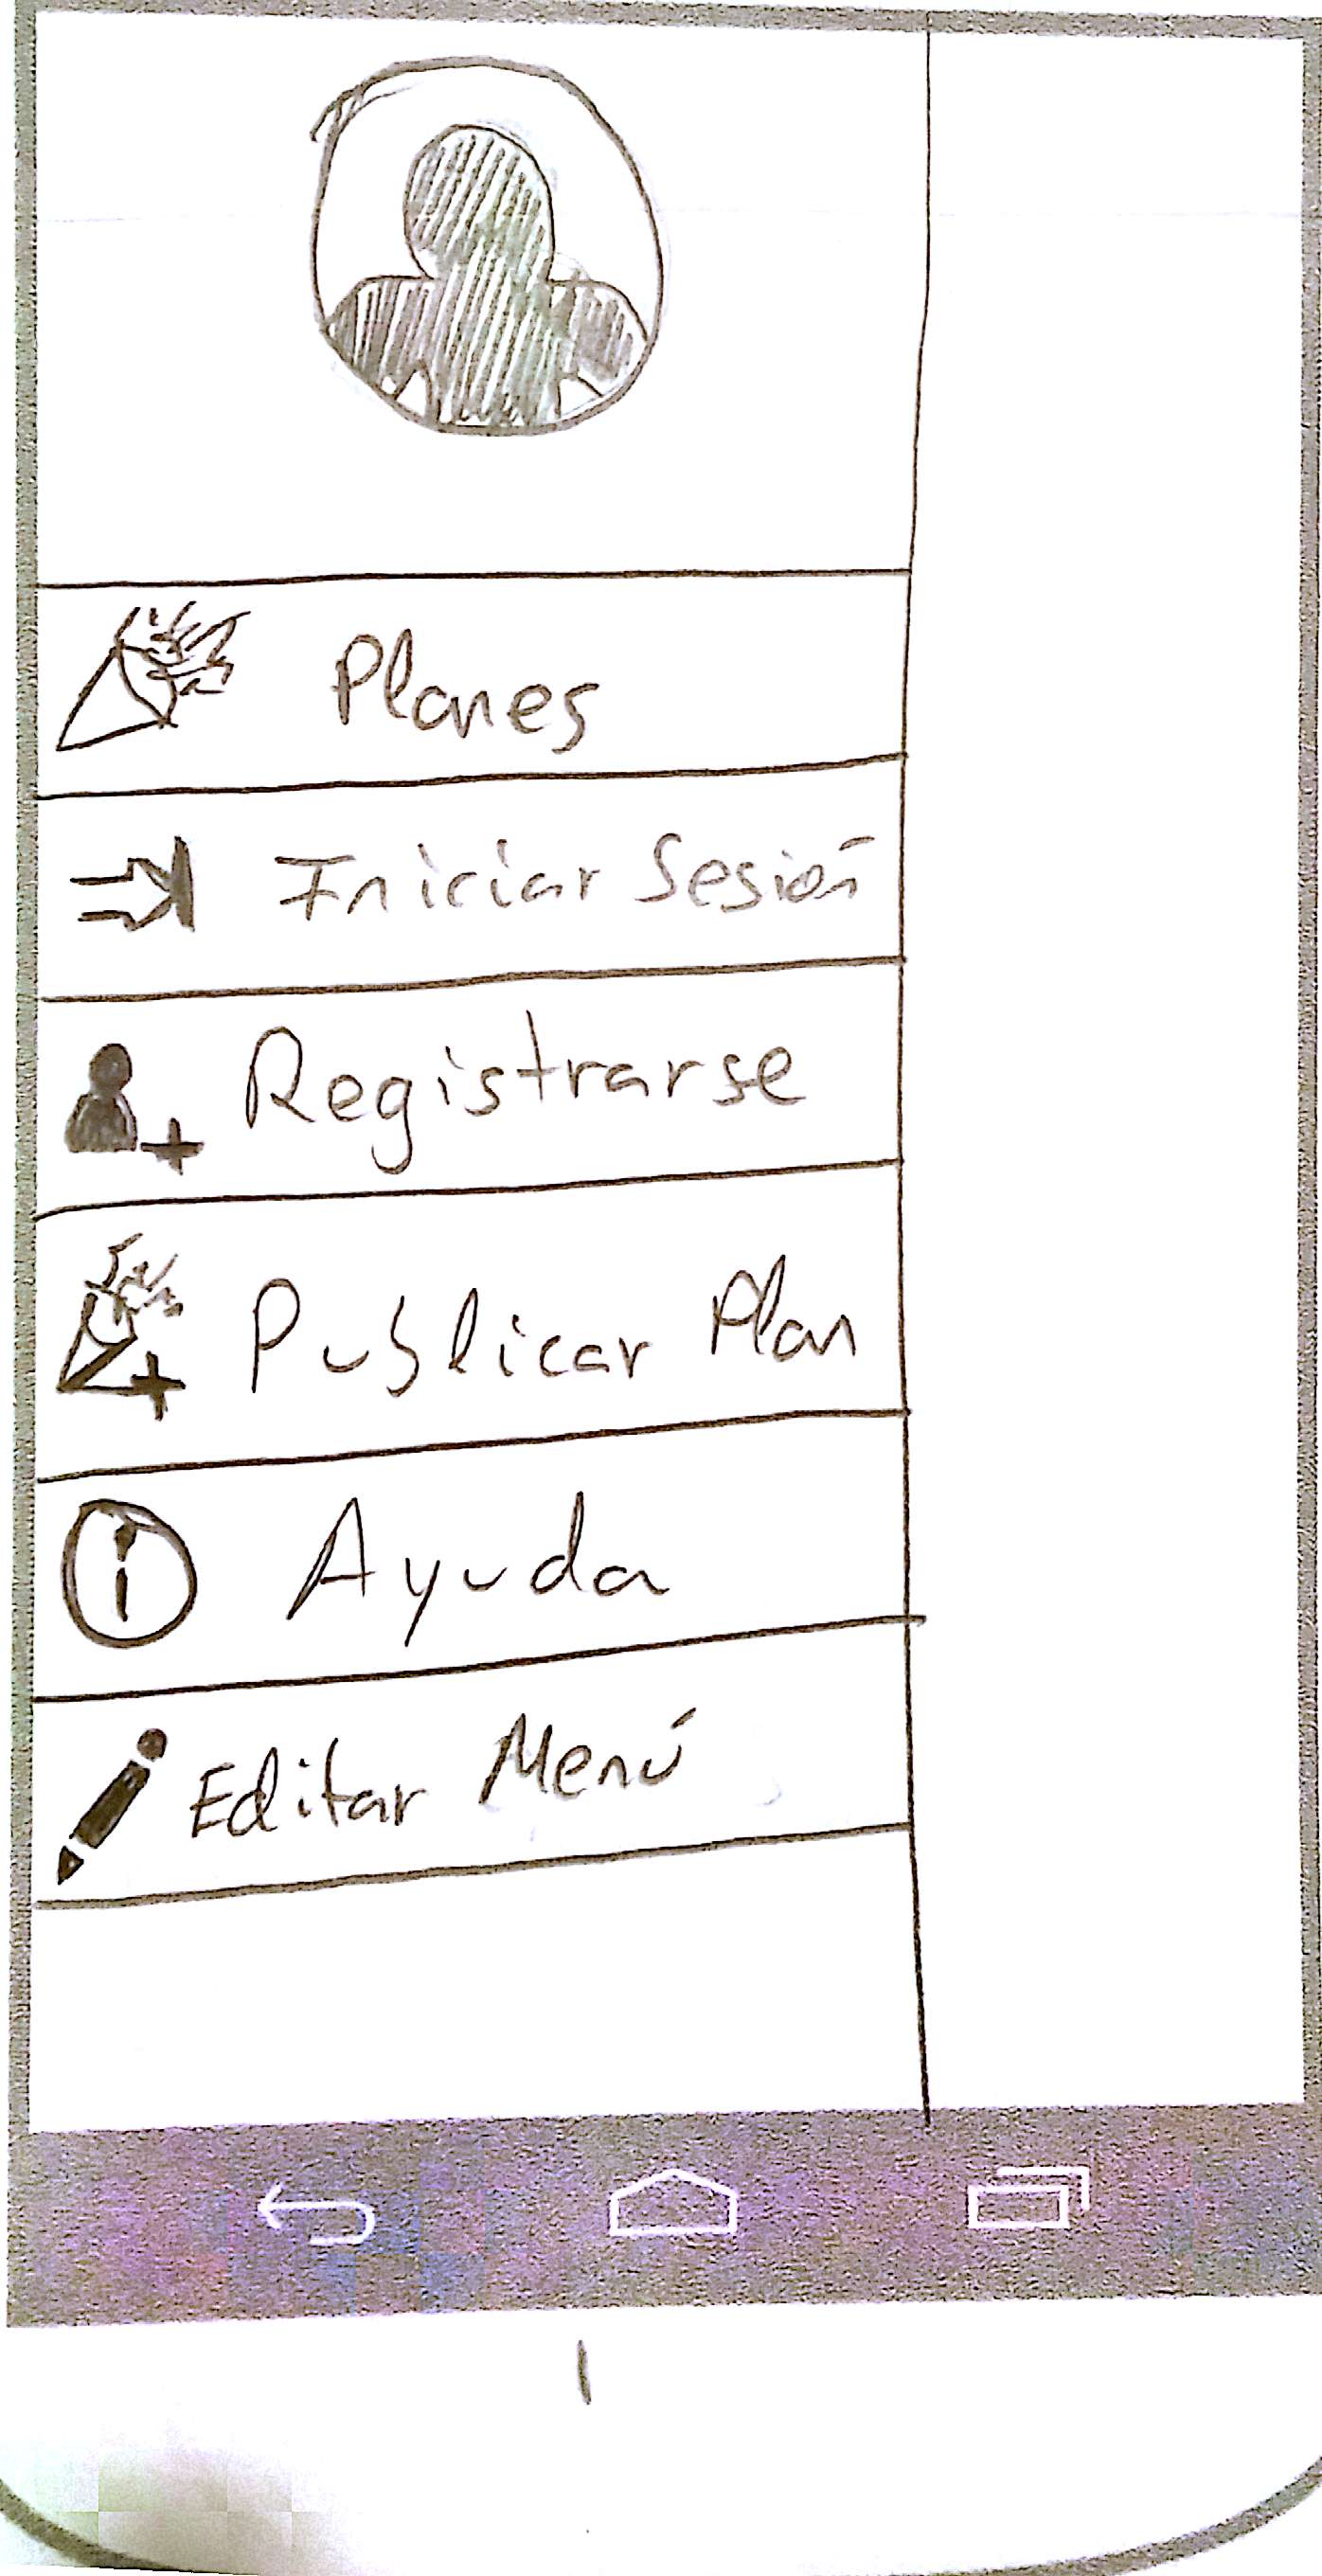 Planes
Iniciar Sesión
Registrarse
Publicar Plan
Ayuda
Editar Menú
1